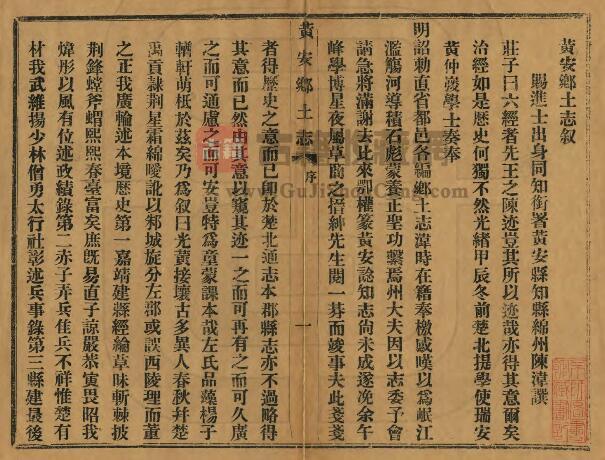 黃安鄉土志叙
賜進士出身同知銜署黃安縣知縣綿州陳漳撰
莊子曰六經者先王之陳迹豈其所以迹哉亦得其意爾矣
治經如是歷史何獨不然光緒甲辰冬前楚北提學使瑞安
黃仲弢學士奏奉
明詔勅直省都邑各編鄉土志漳時在籍奉檄感嘆以爲岷江
濫觴河導積石彪蒙養正聖功繫焉州大夫因以志委予會
請急將滿謝去比來鄂權篆黃安諗知志尚未成遂浼余午
峰學博星夜屬草商之搢紳先生閱一朞而竣事夫此戔戔
者得歷史之意而已卽於楚北通志本郡縣志亦不過略得
其意而已然由其意以窺其迹一之而可再有之而可久廣
之而可通慮之而可安豈特爲童蒙課本哉左氏品藻楊子
輶軒萌柢於茲矣乃爲叙曰光黃接壤古多異人春秋幷楚
禹貢隷荆星霜綿曖訛以邾城旋分左部或誤西陵理而董
之正我廣輪述本境歷史第一嘉靖建縣經綸草昧斬棘披
荆鋒螳斧蝟熙熙春臺富矣庶旣易直子諒嚴恭寅畏昭我
煒彤以風有位述政績錄第二赤子弄兵隹兵不祥惟楚有
材我武維揚少林僧勇太行社彰述兵事錄第三縣建最後
黃安鄉土志
序
一